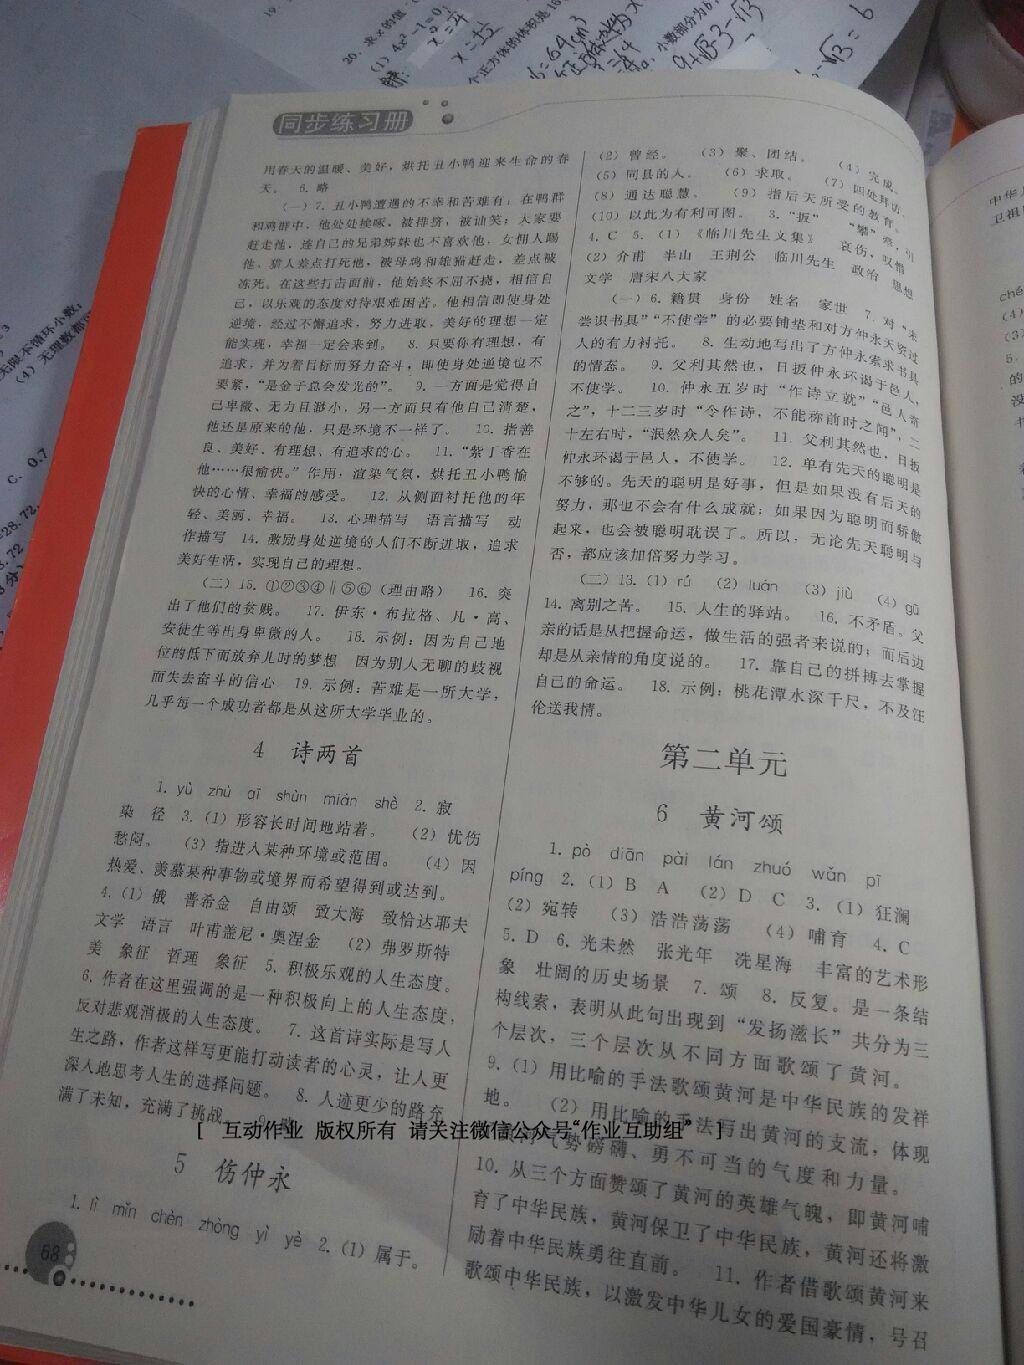 同步练习册
用春天的温暖、美好，烘托丑小鸭迎来生命的春
天。 6. 略
(一) 7. 丑小鸭遭遇的不幸和苦难有：在鸭群
和鸡群中，他处处挨啄，被排挤，被讪笑；大家要
赶走他，连自己的兄弟姊妹也不喜欢他，女佣人踢
他，猎人差点打死他，被母鸡和雄猫赶走，差点被
冻死。在这些打击面前，他始终不屈不挠，相信自
己，以乐观的态度对待艰难困苦。他相信即使身处
逆境，经过不懈追求，努力进取，美好的理想一定
能实现，幸福一定会来到。 8. 只要你有理想，有
追求，并为着目标而努力奋斗，即使身处逆境也不
要紧，“是金子总会发光的”。 9. 一方面是觉得自
己卑微、无力且渺小，另一方面只有他自己清楚，
他还是原来的他，只是环境不一样了。 10. 指善
良、美好、有理想、有追求的心。 11. “紫丁香在
他……很愉快。”作用：渲染气氛，烘托丑小鸭愉
快的心情、幸福的感受。 12. 从侧面衬托他的年
轻、美丽、幸福。 13. 心理描写 语言描写 动
作描写 14. 激励身处逆境的人们不断进取，追求
美好生活，实现自己的理想。
(二) 15. ①②③④∥⑤⑥（理由略） 16. 突
出了他们的贫贱。 17. 伊东·布拉格、凡·高、
安徒生等出身卑微的人。 18. 示例：因为自己地
位的低下而放弃儿时的梦想 因为别人无聊的歧视
而失去奋斗的信心 19. 示例：苦难是一所大学，
几乎每一个成功者都是从这所大学毕业的。
4 诗两首
1. yù zhù qī shùn mián shè 2. 寂
染 径 3. (1) 形容长时间地站着。 (2) 忧伤
愁闷。 (3) 指进入某种环境或范围。 (4) 因
热爱、羡慕某种事物或境界而希望得到或达到。
4. (1) 俄 普希金 自由颂 致大海 致恰达耶夫
文学 语言 叶甫盖尼·奥涅金 (2) 弗罗斯特
美 象征 哲理 象征 5. 积极乐观的人生态度。
6. 作者在这里强调的是一种积极向上的人生态度，
反对悲观消极的人生态度。 7. 这首诗实际是写人
生之路，作者这样写更能打动读者的心灵，让人更
深入地思考人生的选择问题。 8. 人迹更少的路充
满了未知，充满了挑战。 9. 略
5 伤仲永
1. lì mǐn chèn zhòng yì yè 2. (1) 属于。
68
(2) 曾经。 (3) 聚、团结。 (4) 完成。
(5) 同县的人。 (6) 求取。 (7) 四处拜访。
(8) 通达聪慧。 (9) 指后天所受的教育。
(10) 以此为有利可图。 3. “扳” “攀”牵，引
4. C 5. (1) 《临川先生文集》 哀伤，叹惜
(2) 介甫 半山 王荆公 临川先生 政治 思想
文学 唐宋八大家
(一) 6. 籍贯 身份 姓名 家世 7. 对“未
尝识书具”“不使学”的必要铺垫和对方仲永天资过
人的有力衬托。 8. 生动地写出了方仲永索求书具
的情态。 9. 父利其然也，日扳仲永环谒于邑人，
不使学。 10. 仲永五岁时“作诗立就”“邑人奇
之”，十二三岁时“令作诗，不能称前时之闻”，二
十左右时，“泯然众人矣”。 11. 父利其然也，日扳
仲永环谒于邑人，不使学。 12. 单有先天的聪明是
不够的。先天的聪明是好事，但是如果没有后天的
努力，那也不会有什么成就；如果因为聪明而骄傲
起来，也会被聪明耽误了。所以，无论先天聪明与
否，都应该加倍努力学习。
(二) 13. (1) rú (2) luán (3) jiù (4) gū
14. 离别之苦。 15. 人生的驿站。 16. 不矛盾。父
亲的话是从把握命运，做生活的强者来说的；而后边
却是从亲情的角度说的。 17. 靠自己的拼搏去掌握
自己的命运。 18. 示例：桃花潭水深千尺，不及汪
伦送我情。
第二单元
6 黄河颂
1. pò diān pài lán zhuó wǎn pī
píng 2. (1) B A (2) D C 3. (1) 狂澜
(2) 宛转 (3) 浩浩荡荡 (4) 哺育 4. C
5. D 6. 光未然 张光年 冼星海 丰富的艺术形
象 壮阔的历史场景 7. 颂 8. 反复。是一条结
构线索，表明从此句出现到“发扬滋长”共分为三
个层次，三个层次从不同方面歌颂了黄河。
9. (1) 用比喻的手法歌颂黄河是中华民族的发祥
地。 (2) 用比喻的手法写出黄河的支流，体现
黄河气势磅礴、勇不可当的气度和力量。
10. 从三个方面赞颂了黄河的英雄气魄，即黄河哺
育了中华民族，黄河保卫了中华民族，黄河还将激
励着中华民族勇往直前。 11. 作者借歌颂黄河来
歌颂中华民族，以激发中华儿女的爱国豪情，号召
[ 互动作业 版权所有 请关注微信公众号“作业互助组” ]